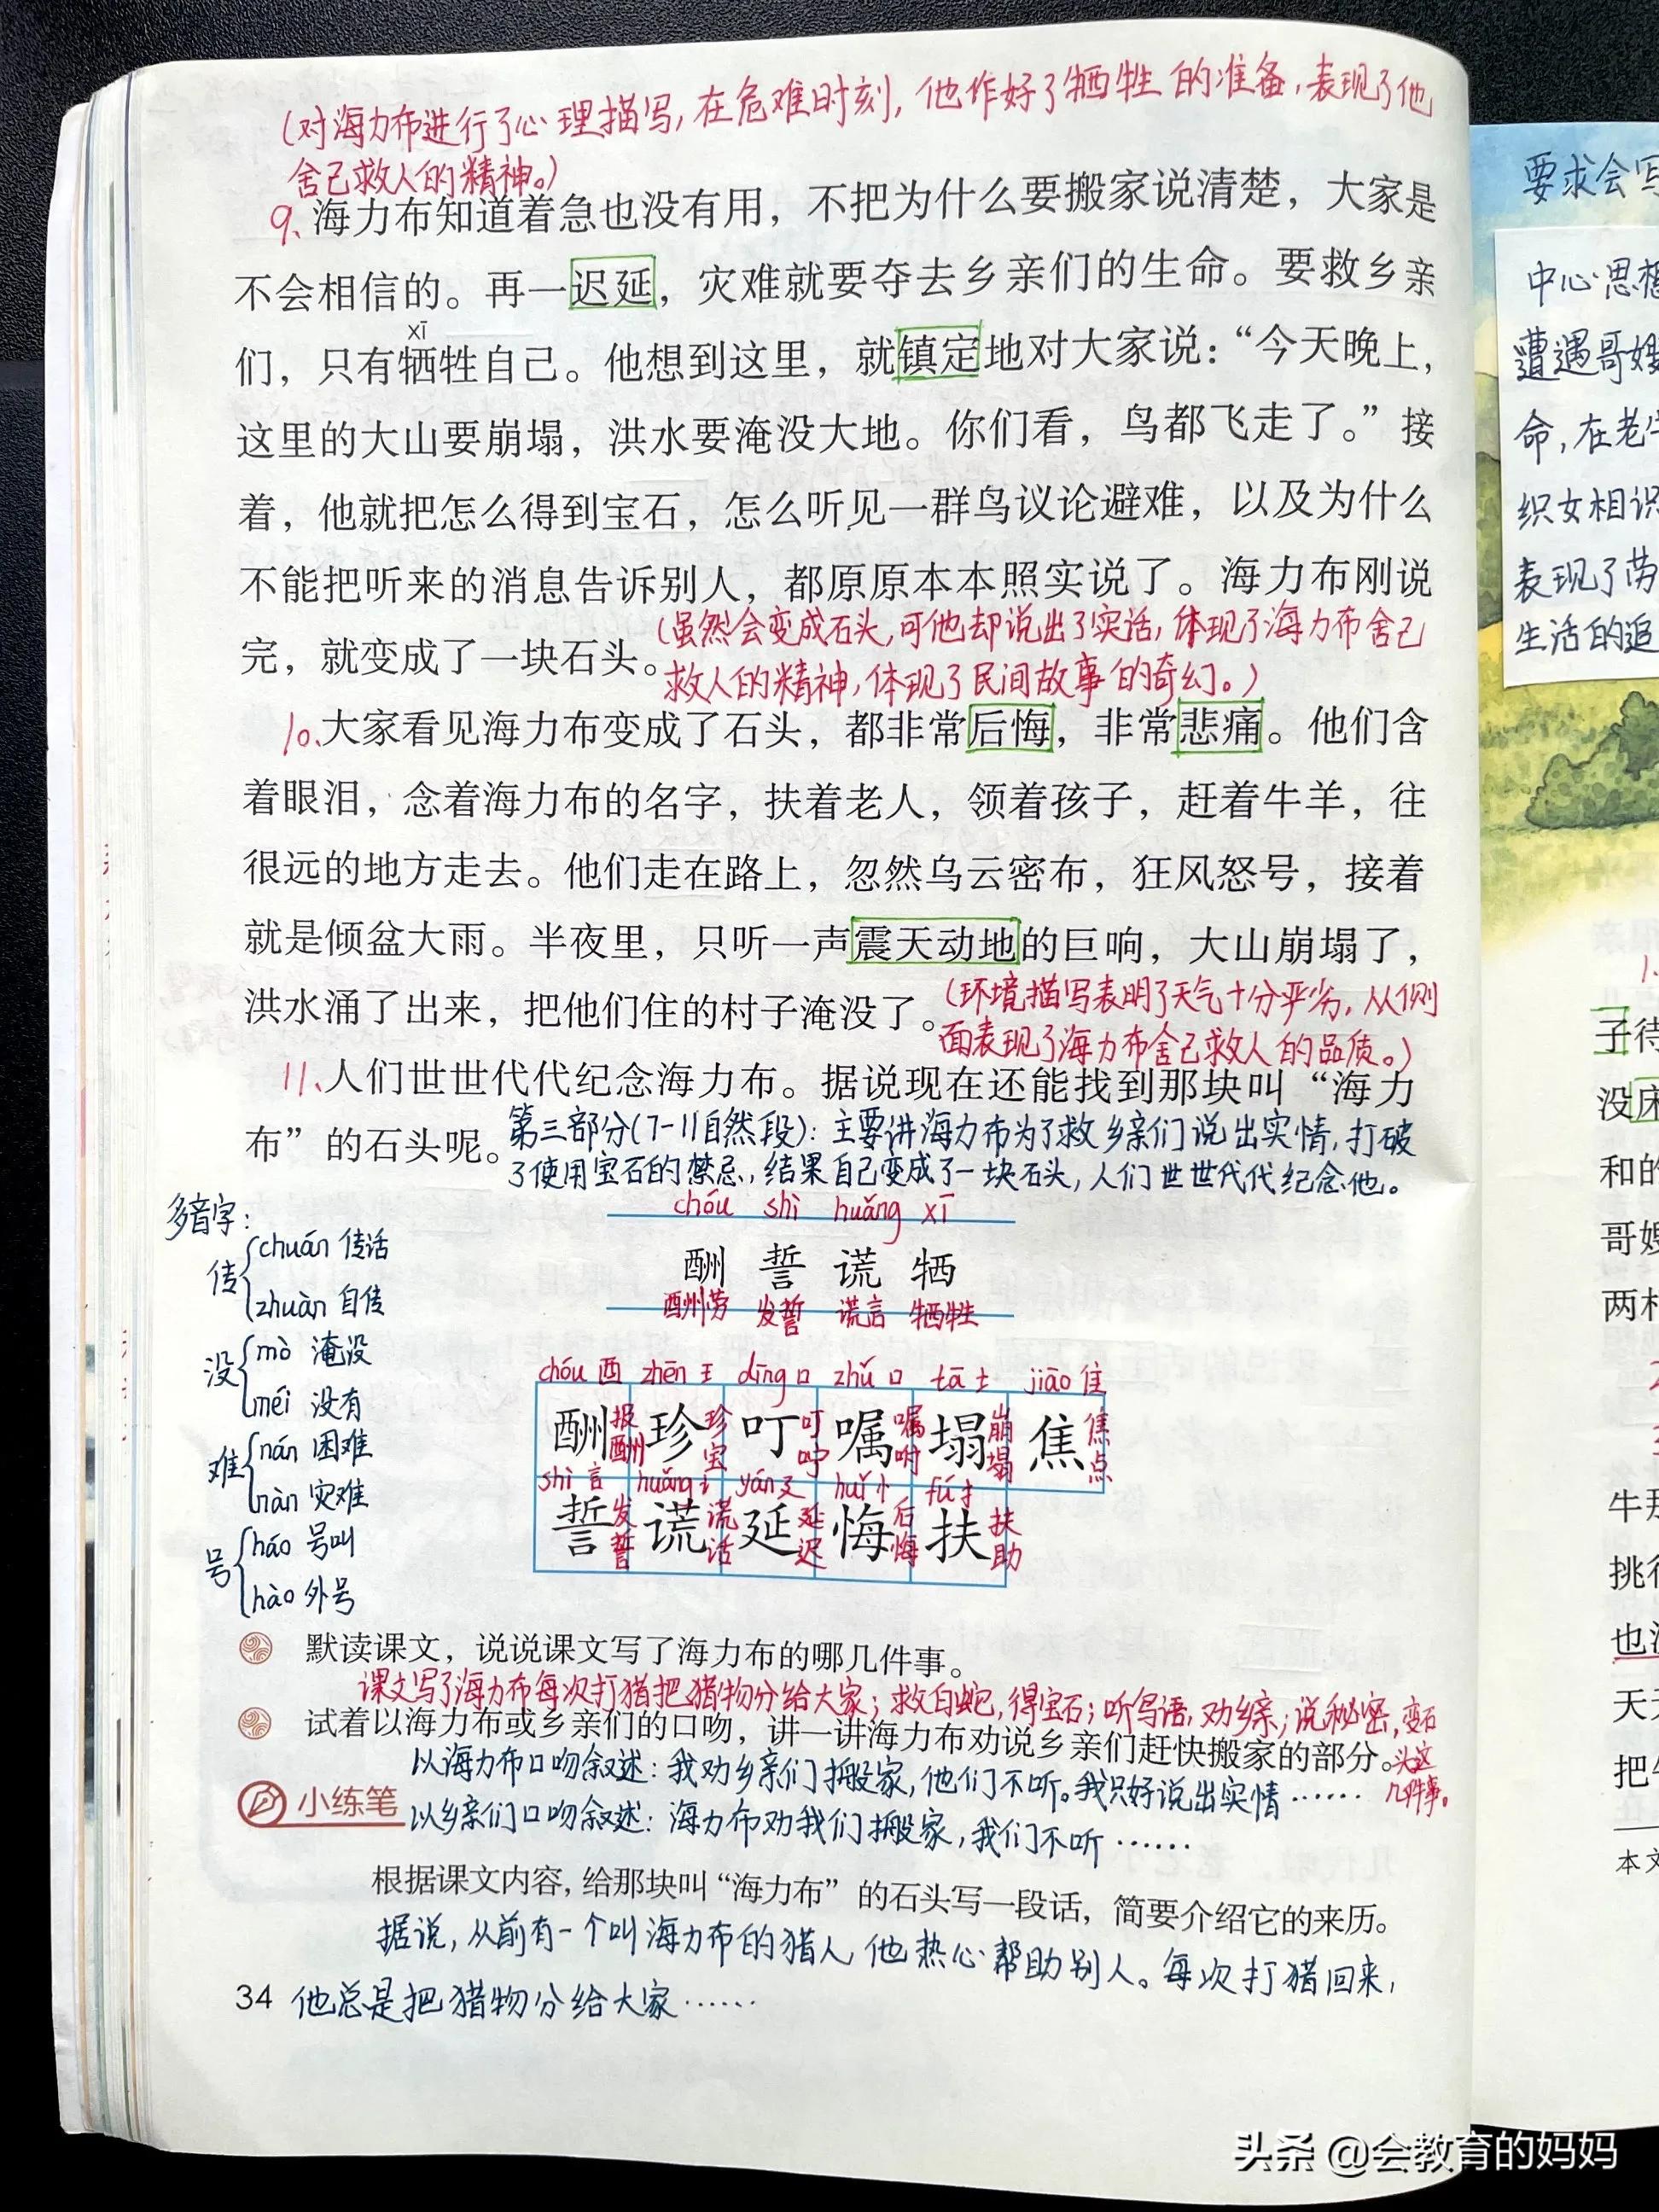 (对海力布进行了心理描写,在危难时刻,他作好了牺牲的准备,表现了他
舍己救人的精神。)
9、海力布知道着急也没有用，不把为什么要搬家说清楚，大家是
不会相信的。再一迟延，灾难就要夺去乡亲们的生命。要救乡亲
xī
们，只有牺牲自己。他想到这里，就镇定地对大家说：“今天晚上，
这里的大山要崩塌，洪水要淹没大地。你们看，鸟都飞走了。”接
着，他就把怎么得到宝石，怎么听见一群鸟议论避难，以及为什么
不能把听来的消息告诉别人，都原原本本照实说了。海力布刚说
完，就变成了一块石头。
(虽然会变成石头,可他却说出了实话,体现了海力布舍己
救人的精神,体现了民间故事的奇幻。)
10、大家看见海力布变成了石头，都非常后悔，非常悲痛。他们含
着眼泪，念着海力布的名字，扶着老人，领着孩子，赶着牛羊，往
很远的地方走去。他们走在路上，忽然乌云密布，狂风怒号，接着
就是倾盆大雨。半夜里，只听一声震天动地的巨响，大山崩塌了，
洪水涌了出来，把他们住的村子淹没了。
(环境描写表明了天气十分严劣,从侧
面表现了海力布舍己救人的品质。)
11、人们世世代代纪念海力布。据说现在还能找到那块叫“海力
布”的石头呢。
第三部分(7-11自然段):主要讲海力布为了救乡亲们说出实情,打破
了使用宝石的禁忌,结果自己变成了一块石头,人们世世代代纪念他。
多音字:
传 chuán 传话
zhuàn 自传
没 mò 淹没
méi 没有
难 nán 困难
nàn 灾难
号 háo 号叫
hào 外号
chóu shì huǎng xī
酬 誓 谎 牺
酬劳 发誓 谎言 牺牲
chóu 酉 zhēn 王 dīng 口 zhǔ 口 tā 土 jiāo 隹
酬 报酬 珍 珍宝 叮 叮咛 嘱 嘱咐 塌 崩塌 焦 焦点
shì 言 huǎng 讠 yán 廴 huǐ 忄 fú 扌
誓 发誓 谎 谎话 延 延迟 悔 后悔 扶 扶助
默读课文，说说课文写了海力布的哪几件事。
课文写了海力布每次打猎把猎物分给大家;救白蛇,得宝石;听鸟语,劝乡亲;说秘密,变石
头这
几件事。
试着以海力布或乡亲们的口吻，讲一讲海力布劝说乡亲们赶快搬家的部分。
以海力布口吻叙述:我劝乡亲们搬家,他们不听。我只好说出实情……
小练笔
以乡亲们口吻叙述:海力布劝我们搬家,我们不听……
根据课文内容，给那块叫“海力布”的石头写一段话，简要介绍它的来历。
据说,从前有一个叫海力布的猎人,他热心帮助别人。每次打猎回来,
他总是把猎物分给大家……
34
要求会写
中心思想
遭遇哥嫂
命,在老牛
织女相识
表现了劳
生活的追
1、
子待
没床
和的
哥嫂
两相
牛那
挑行
也没
天天
把牛
本文
头条 @会教育的妈妈